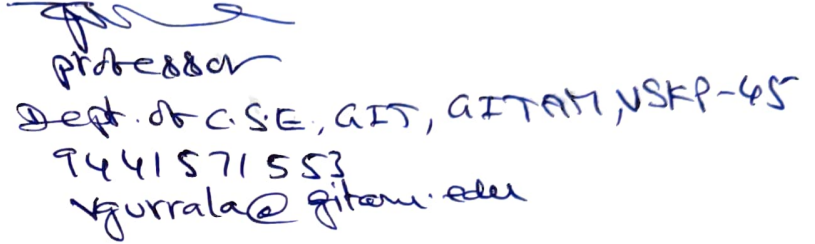 professor
Dept. of C.S.E, GIT, GITAM, VSKP-45
9441571553
vgurrala@gitam.edu